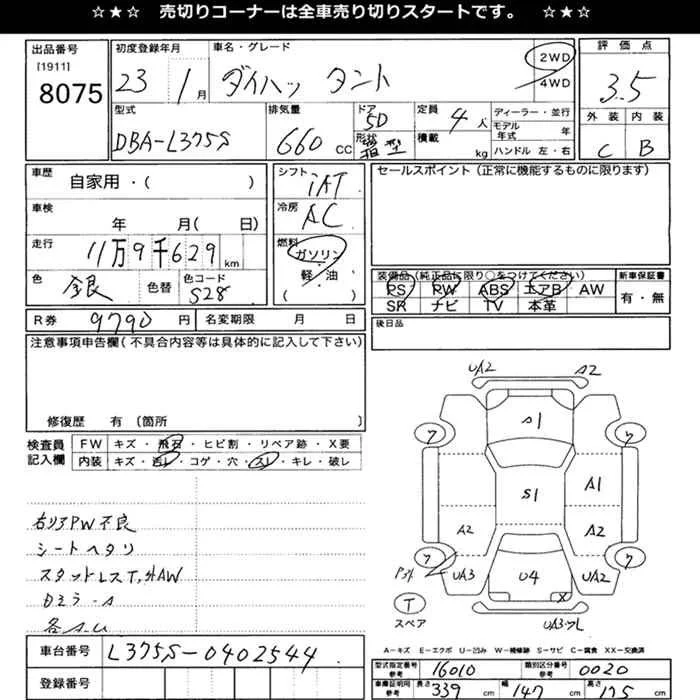 ☆★☆ 売切りコーナーは全車売り切りスタートです。 ☆★☆
出品番号
[1911]
8075
初度登録年月
23 1月
車名・グレード
ダイハツ タント
2WD
4WD
評価点
3.5
外装 内装
C B
型式
DBA-L375S
排気量
660 CC
ドア
5D
形状
箱型
定員
4人
積載
kg
ディーラー・並行
モデル年式 年
ハンドル 左・右
車歴
自家用・( )
車検
年 月( 日)
走行
11万9千629km
色
銀
色替
色コード
S28
シフト
IAT
冷房
AC
燃料
ガソリン
軽・油
( )
セールスポイント(正常に機能するものに限ります)
装備品(純正品に限り○をつけてください)
PS PW ABS エアB AW
SR ナビ TV 本革
新車保証書
有・無
R券 9790円
名変期限 月 日
後日品
注意事項申告欄(不具合内容等は具体的に記入して下さい)
修復歴 有(箇所 )
検査員記入欄
FW キズ・飛石・ヒビ割・リペア跡・X要
内装 キズ・汚レ・コゲ・穴・スレ・キレ・破レ
右リアPW不良
シートヘタリ
スタットレスT,外AW
各A.U
UA2 A2
S1
ワ ワ
S1 A1
A2 A2
ワ ワ
UA3 U4 UA2
X
T
スペア
A-キズ E-エクボ U-凹み W-補修跡 S-サビ C-腐食 XX-交換済
車台番号
L375S-0402544
登録番号
型式指定番号
参考
16010
類別区分番号
参考
0020
車庫証明用
参考
長さ 339 cm
幅 147 cm
高さ 175 cm